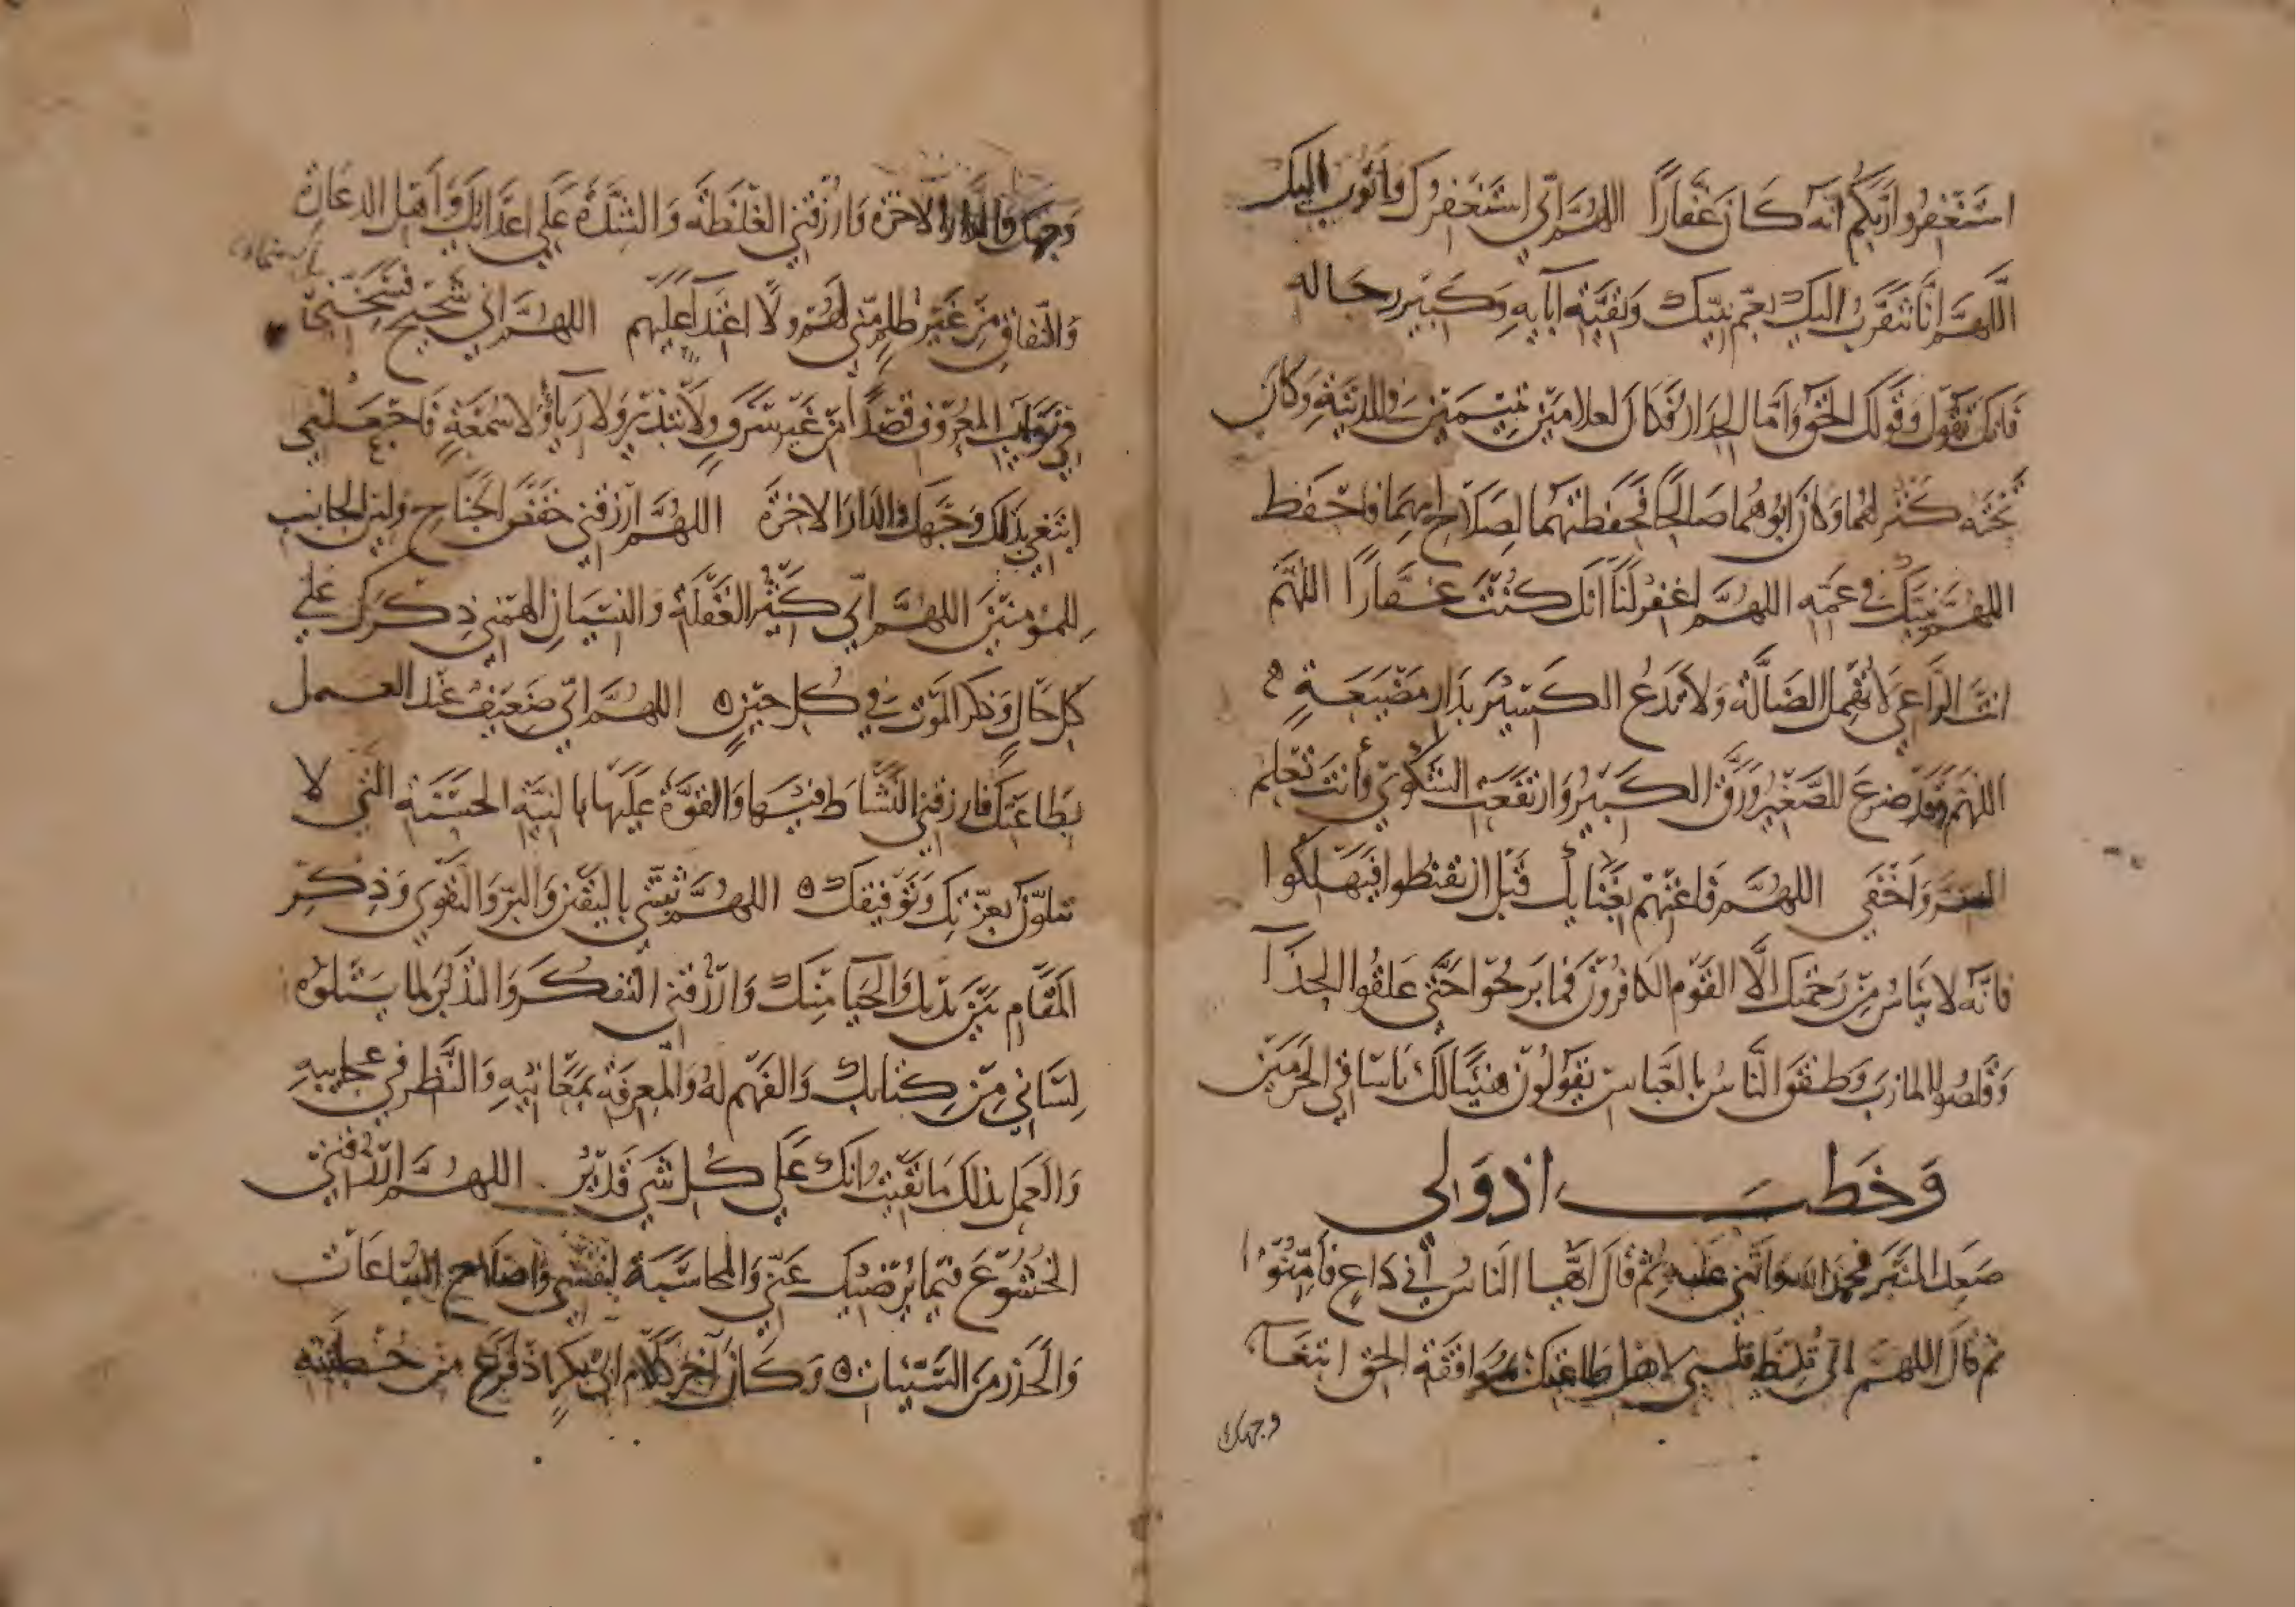 استغفروا ربكم انه كان غفارا اللهم اني استغفرك واتوب اليك
اللهم انا نتقرب اليك بعم نبيك وبقية آبايه وكبير رجاله
فانك تقول وقولك الحق واما الجدار فكان لغلامين يتيمين في المدينة وكان
تحته كنز لهما وكان ابوهما صالحا فحفظتهما لصلاح ابيهما فاحفظ
اللهم نبيك في عمه اللهم اغفر لنا انك كنت غفارا اللهم
انت الراعي لا تهمل الضالة ولا تدع الكسير بدار مضيعة
اللهم قد ضرع الصغير ورق الكبير وارتفعت الشكوى وأنت تعلم
السر واخفى اللهم فاغثهم بغياثك قبل ان يقنطوا فيهلكوا
فانه لا يياس من رحمتك الا القوم الكافرون فما برحوا حتى علقوا الحذآ
وقلصوا المازر وطفق الناس بالعباس يقولون هنيئا لك ياساقي الحرمين
وخطب اذ ولي
صعد المنبر فحمد الله واثنى عليه ثم قال ايها الناس اني داع فأمنوا
ثم قال اللهم اني غليظ فليني لاهل طاعتك بموافقة الحق ابتغآ
وجهك
وجهك والدار الاخرة وارزقني الغلظة والشدة على اعدائك واهل الدعارة
والنفاق من غير ظلم مني لهم ولا اعتدآ عليهم اللهم اني شحيح فسخني
في نوايب المعروف قصدا من غير سرف ولا تبذير ولا ريآ ولا سمعة واجعلني
ابتغي بذلك وجهك والدار الاخرة اللهم ارزقني خفض الجناح ولين الجانب
للمؤمنين اللهم اني كثير الغفلة والنسيان فالهمني ذكرك على
كل حال وذكر الموت في كل حين اللهم اني ضعيف عند العمل
بطاعتك فارزقني النشاط فيها والقوة عليها بالنية الحسنة التي لا
تكون الا بعزتك وتوفيقك اللهم ثبتني باليقين والبر والتقوى وذكر
المقام بين يديك والحيا منك وارزقني التفكر والتذكر لما يتلوه
لساني من كتابك والفهم له والمعرفة بمعانيه والنظر في عجايبه
والعمل بذلك ما بقيت انك على كل شي قدير اللهم ارزقني
الخشوع فيما يرضيك عني والمحاسبة لنفسي واصلاح الساعات
والحذر من السيئات وكان آخر كلام ابي بكر اذ فرغ من خطبته